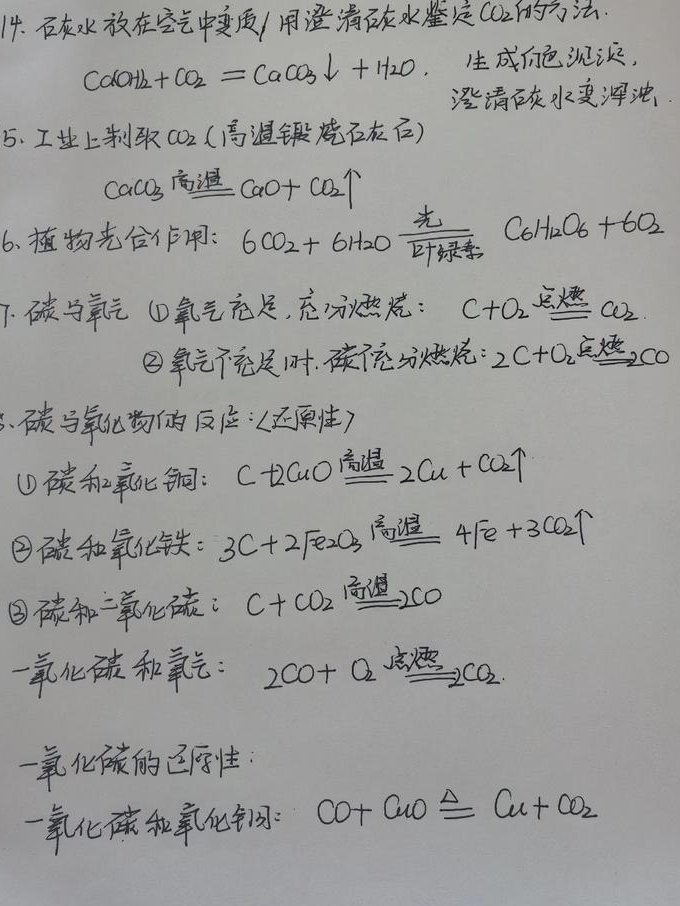 14. 石灰水放在空气中变质/用澄清石灰水鉴定CO2的方法.
Ca(OH)2+CO2=CaCO3↓+H2O. 生成白色沉淀,
澄清石灰水变浑浊.
5. 工业上制取CO2(高温锻烧石灰石)
CaCO3 高温 CaO+CO2↑
6. 植物光合作用: 6CO2+6H2O 光 叶绿素 C6H12O6+6O2
7. 碳与氧气 ①氧气充足,充分燃烧: C+O2 点燃 CO2.
②氧气不充足时.碳不充分燃烧: 2C+O2 点燃 2CO
碳与氧化物的反应:(还原性)
①碳和氧化铜: C+2CuO 高温 2Cu+CO2↑
②碳和氧化铁: 3C+2Fe2O3 高温 4Fe+3CO2↑
③碳和二氧化碳: C+CO2 高温 2CO
一氧化碳和氧气: 2CO+O2 点燃 2CO2.
一氧化碳的还原性:
一氧化碳和氧化铜: CO+CuO △ Cu+CO2